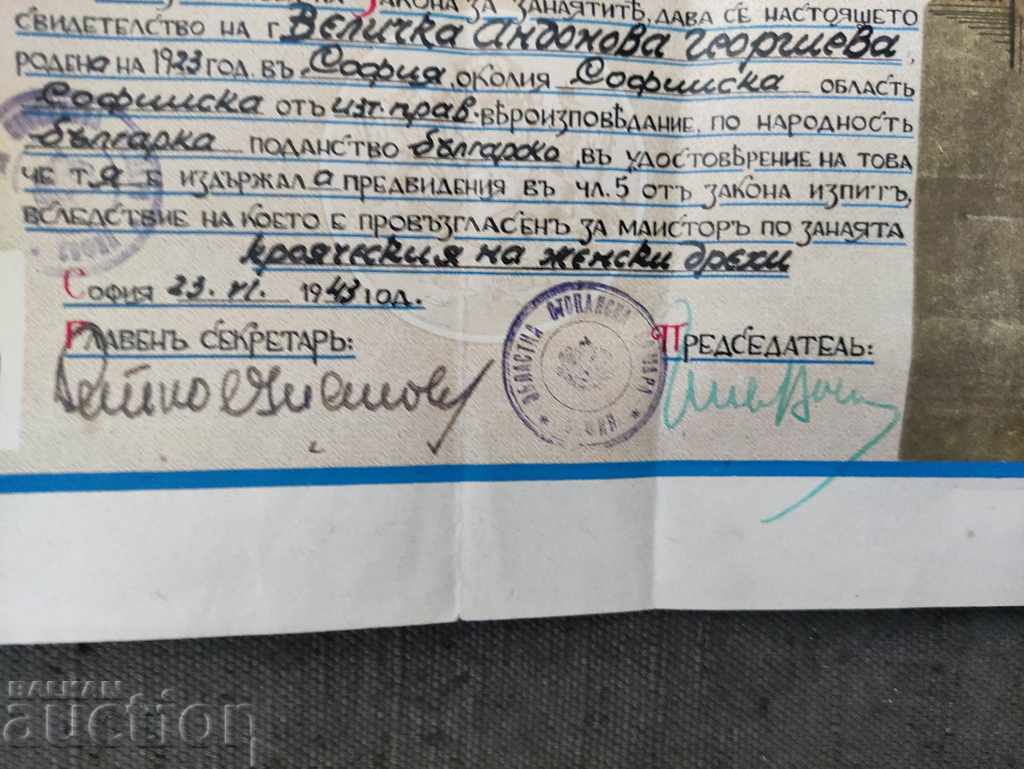 ЗАКОНА ЗА ЗАНАЯТИТѢ, ДАВА СЕ НАСТОЯЩЕТО
СВИДЕТЕЛСТВО НА Г. Величка Андонова Георгиева,
РОДЕНа НА 1923 ГОД. ВЪ София, ОКОЛИЯ Софийска ОБЛАСТЬ
Софийска ОТЪ изт. прав. ВѢРОИЗПОВѢДАНИЕ, ПО НАРОДНОСТЬ
българка ПОДАНСТВО българско, ВЪ УДОСТОВѢРЕНИЕ НА ТОВА
ЧЕ ТЯ Е ИЗДЪРЖАЛа ПРЕДВИДЕНИЯ ВЪ ЧЛ. 5 ОТЪ ЗАКОНА ИЗПИТЪ,
ВСЛЕДСТВИЕ НА КОЕТО Е ПРОВЪЗГЛАСЕНЪ ЗА МАИСТОРЪ ПО ЗАНАЯТА
крояческия на женски дрехи
СОФИЯ 23. VI. 1943 ГОД.
ГЛАВЕНЪ СЕКРЕТАРЬ:
ПРЕДСЕДАТЕЛЬ:
ОБЛАСТНА СТОПАНСКА КАМАРА
* СОФИЯ *
БАЛКАН
auction